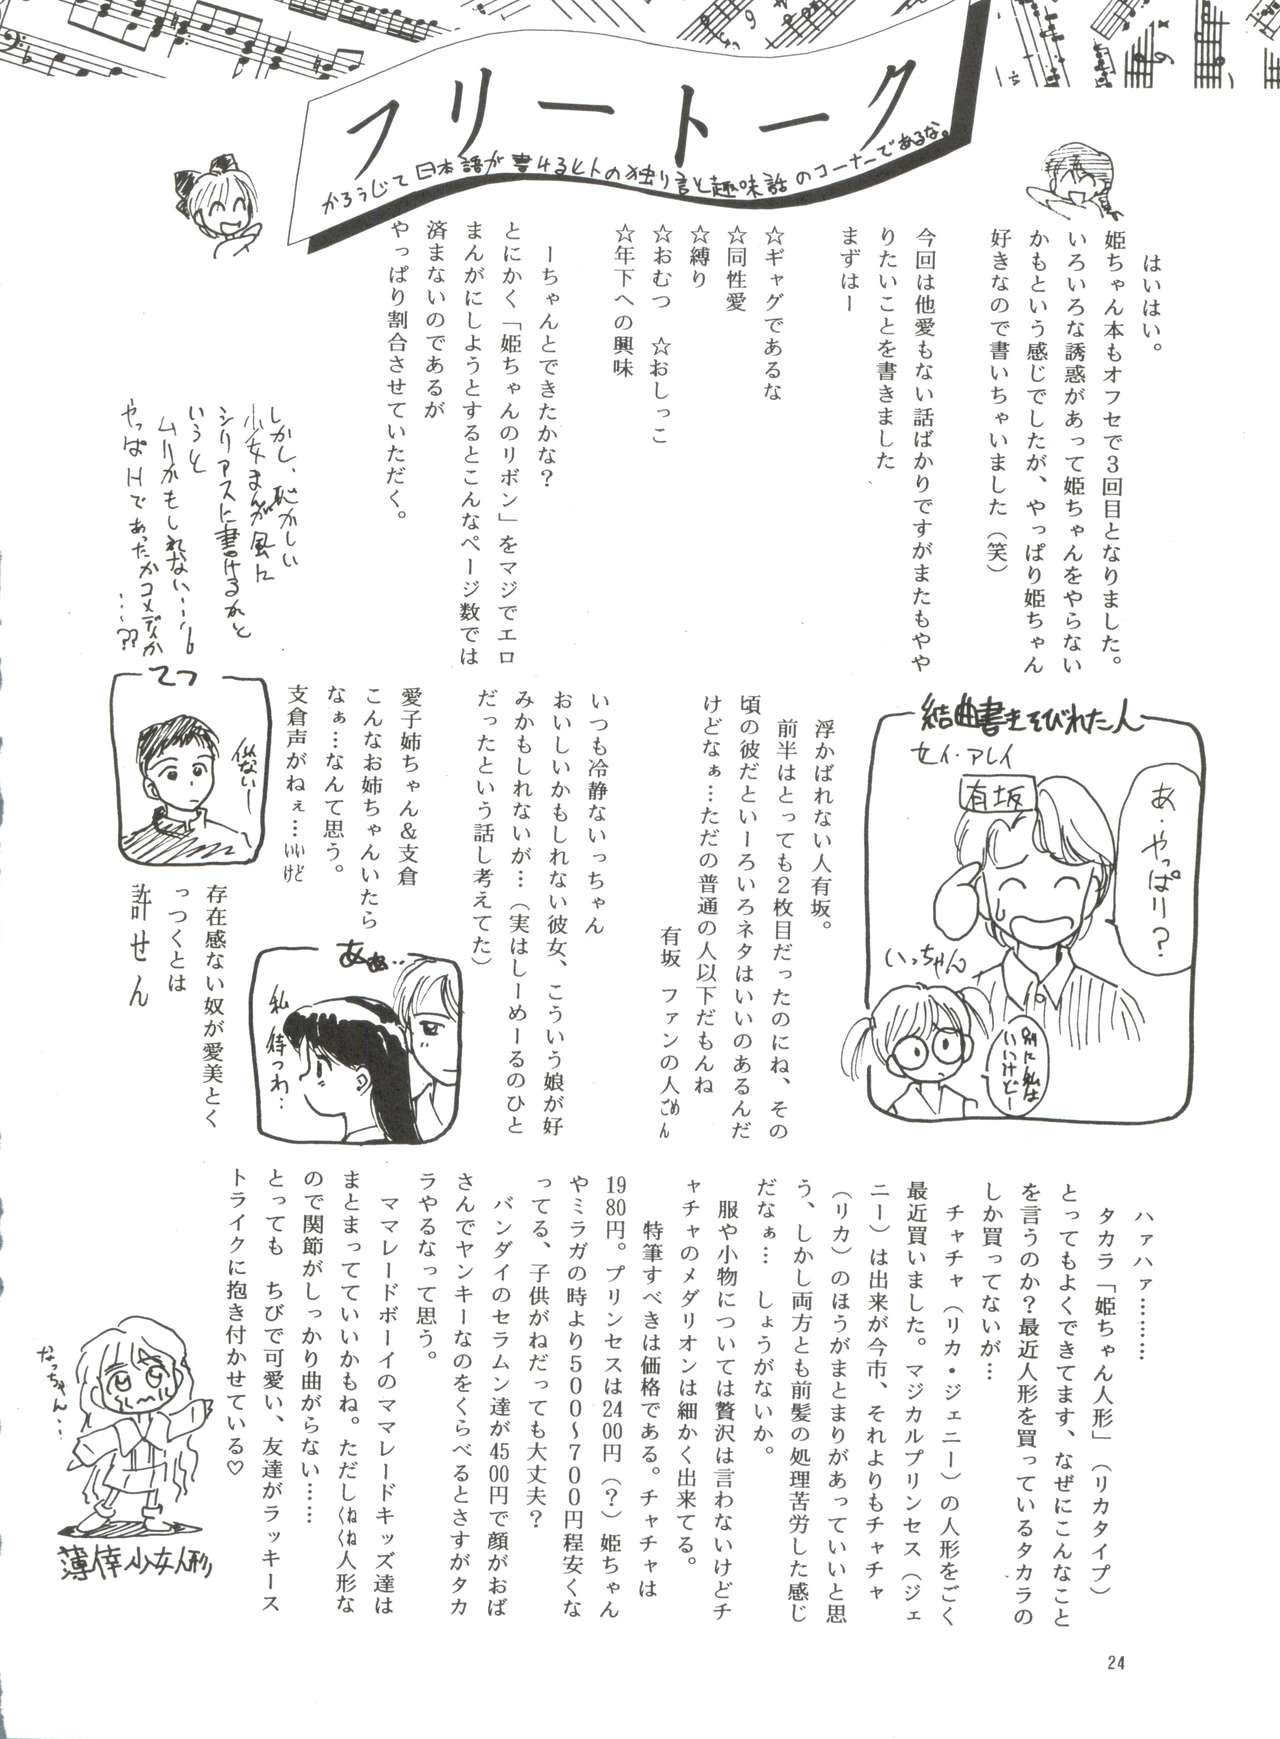 フリートーク
かろうじて日本語が書けるヒトの独り言と趣味話のコーナーであるな。
はいはい。
姫ちゃん本もオフセで3回目となりました。
いろいろな誘惑があって姫ちゃんをやらない
かもという感じでしたが、やっぱり姫ちゃん
好きなので書いちゃいました（笑）
今回は他愛もない話ばかりですがまたもやや
りたいことを書きました
まずはー
☆ギャグであるな
☆同性愛
☆縛り
☆おむつ　☆おしっこ
☆年下への興味
ーちゃんとできたかな？
とにかく「姫ちゃんのリボン」をマジでエロ
まんがにしようとするとこんなページ数では
済まないのであるが
やっぱり割合させていただく。
しかし、恥かしい
少女まんが風に
シリアスに書けるかと
いうと
ムリかもしれない…
やっぱHであったかコメディか
…??
結曲書きそびれた人
セイ・アレイ
有坂
あ・やっぱり？
いっちゃん
別に私は
いいけどー
浮かばれない人有坂。
前半はとっても2枚目だったのにね、その
頃の彼だといーろいろネタはいいのあるんだ
けどなぁ…ただの普通の人以下だもんね
有坂　ファンの人ごめん
いつも冷静ないっちゃん
おいしいかもしれない彼女、こういう娘が好
みかもしれないが…（実はしーめーるのひと
だったという話し考えてた）
愛子姉ちゃん＆支倉
こんなお姉ちゃんいたら
なぁ…なんて思う。
支倉声がねぇ…いいけど
てつ
似ないー
あぁ…
私
待つわ…
存在感ない奴が愛美とく
っつくとは
許せん
ハァハァ………
タカラ「姫ちゃん人形」（リカタイプ）
とってもよくできてます、なぜにこんなこと
を言うのか？最近人形を買っているタカラの
しか買ってないが…
チャチャ（リカ・ジェニー）の人形をごく
最近買いました。マジカルプリンセス（ジェ
ニー）は出来が今市、それよりもチャチャ
（リカ）のほうがまとまりがあっていいと思
う、しかし両方とも前髪の処理苦労した感じ
だなぁ…　しょうがないか。
服や小物については贅沢は言わないけどチ
ャチャのメダリオンは細かく出来てる。
特筆すべきは価格である。チャチャは
1980円。プリンセスは2400円（？）姫ちゃん
やミラガの時より500〜700円程安くな
ってる、子供がねだっても大丈夫？
バンダイのセラムン達が4500円で顔がおば
さんでヤンキーなのをくらべるとさすがタカ
ラやるなって思う。
ママレードボーイのママレードキッズ達は
まとまってていいかもね。ただしくねくね人形な
ので関節がしっかり曲がらない……
とっても　ちびで可愛い、友達がラッキース
トライクに抱き付かせている♡
なっちゃん…
薄倖少女人形
24